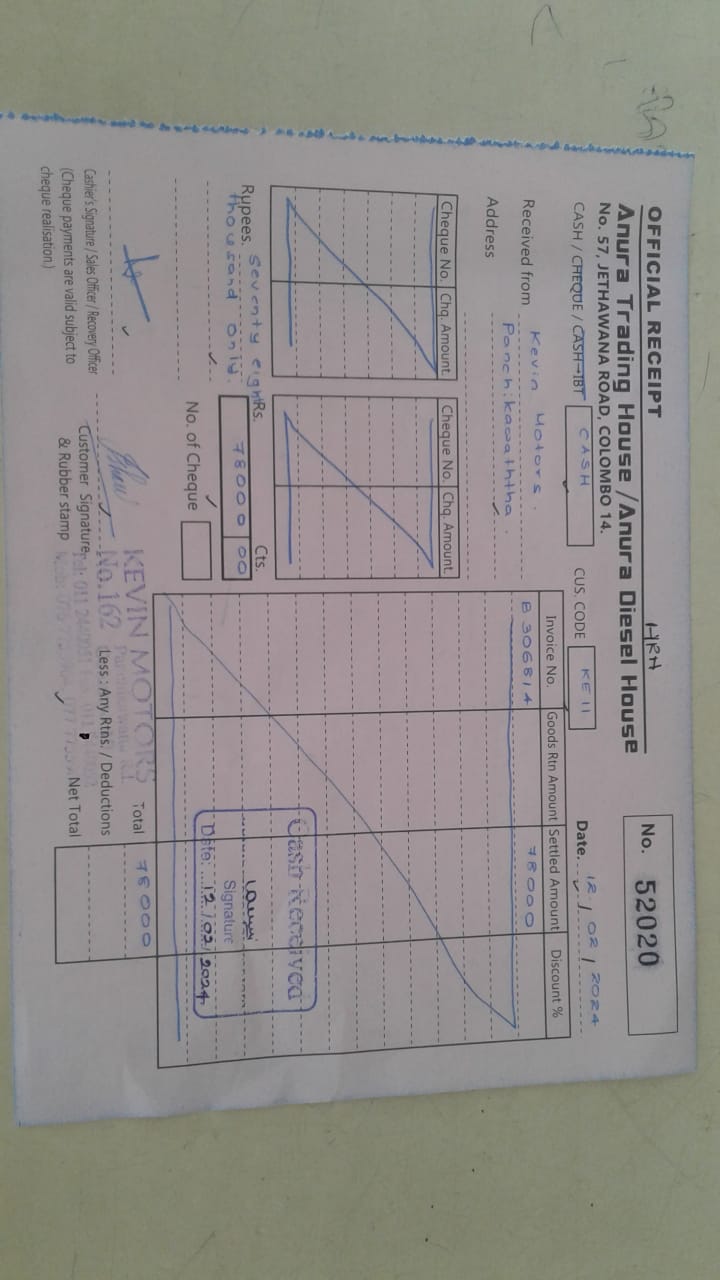 HRH
OFFICIAL RECEIPT
Anura Trading House /Anura Diesel House
No. 57, JETHAWANA ROAD, COLOMBO 14.
No. 52020
CASH / CHEQUE / CASH-IBT CASH CUS. CODE KE 11 Date. 12 / 02 / 2024
Received from Kevin Motors.
Panchikawaththa.
Address
Cheque No. Chq. Amount Cheque No. Chq. Amount
Invoice No. Goods Rtn Amount Settled Amount Discount %
B 306814 78000
Rupees. Seventy eight
thousand only.
Rs. Cts.
78000 00
No. of Cheque
Cash Received
Signature
Date: 12/02/2024
Total 78000
Less : Any Rtns. / Deductions
Net Total
KEVIN MOTORS
No. 162
Cashier's Signature / Sales Officer / Recovery Officer
(Cheque payments are valid subject to
cheque realisation.)
Customer Signature
& Rubber stamp